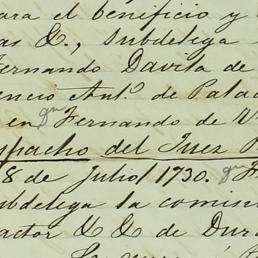 ara el beneficio y
as &., subdelega
Fernando Davila de
encio Ant.º de Pala
en Dn Fernando de V
spacho del Juez
8 de Julio 1730. Dn F
ubdelega la comis
actor &. &. de Dur